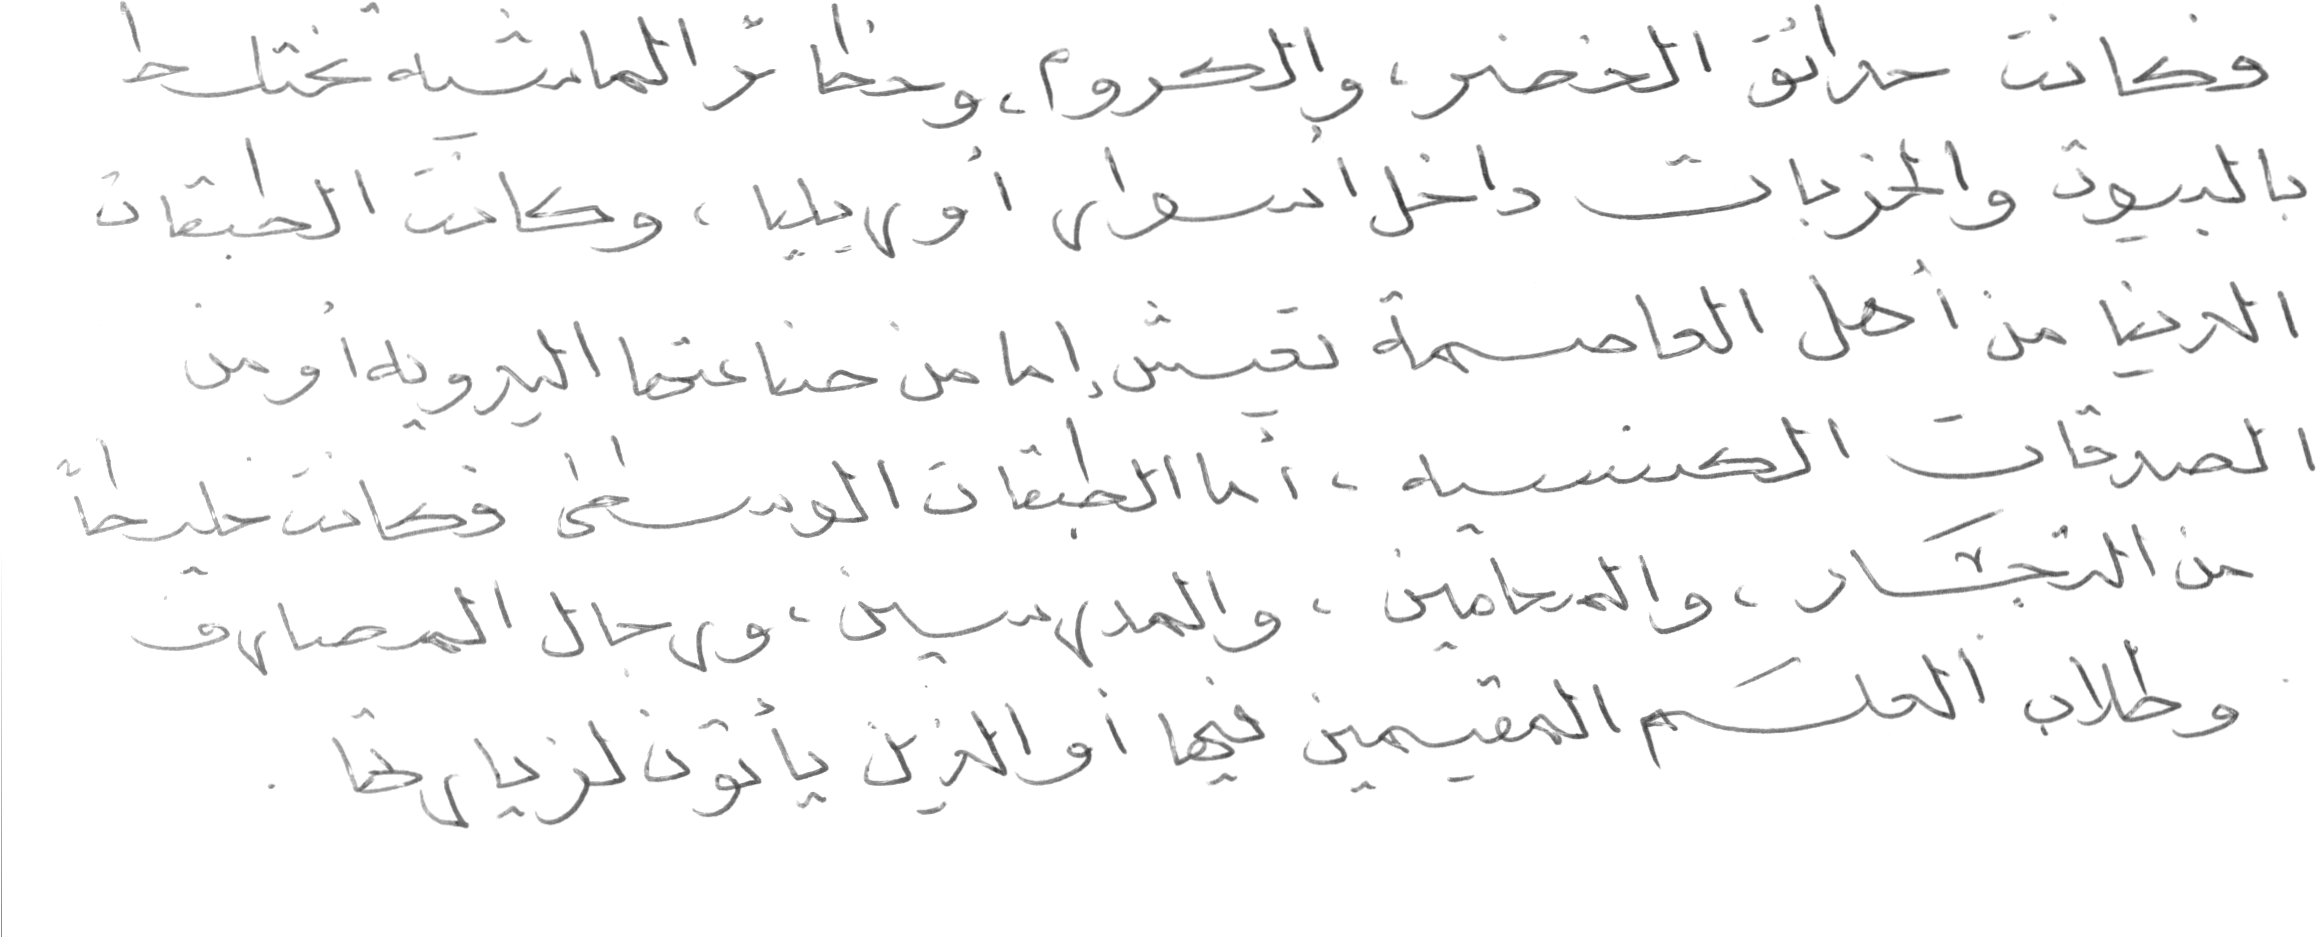 فكانت حدائق الخضر، والكروم، وحظائر الماشية تختلط
بالبيوت والخربات داخل أسوار أوريليا، وكانت الطبقات
الدنيا من أهل العاصمة تعيش إما من صناعتها اليدوية أو من
الصدقات الكنسية، أما الطبقات الوسطى فكانت خليطاً
من التجَّار، والمحامين، والمدرسين، ورجال المصارف
وطلاب العلَم المقيمين فيها أو الذين يأتون لزيارتها.